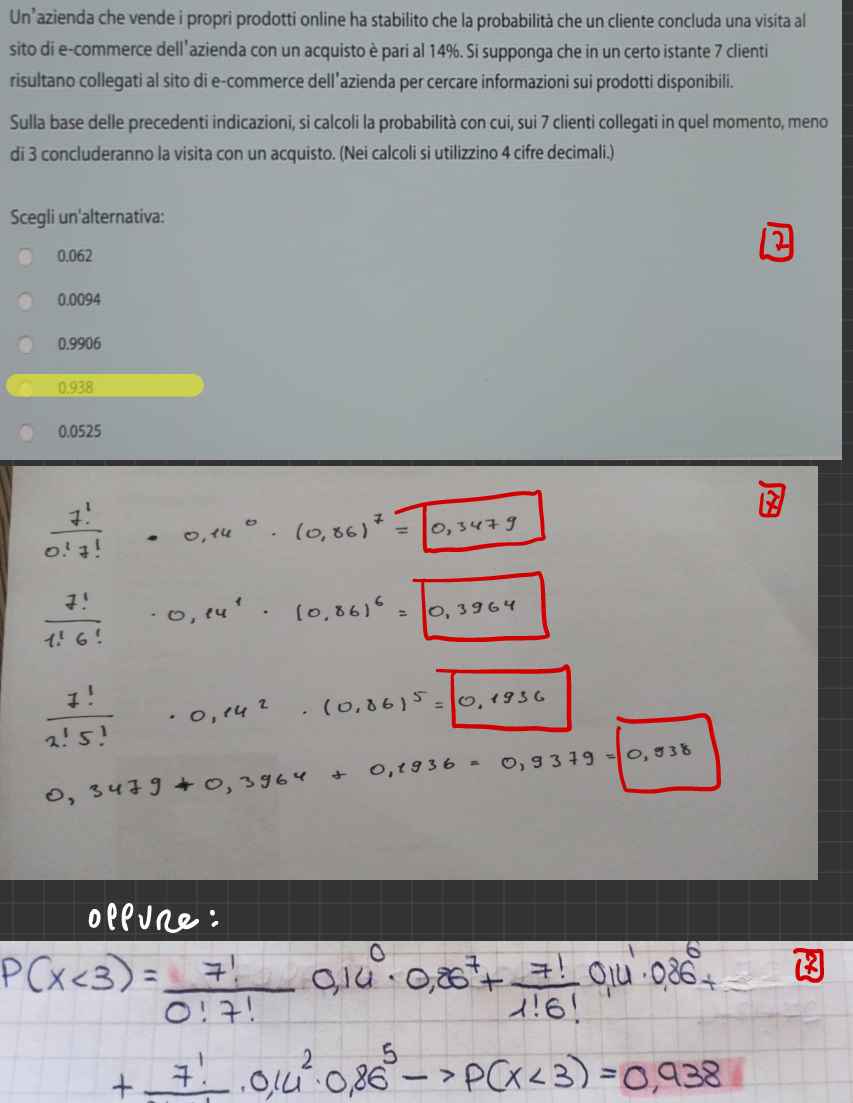 Un'azienda che vende i propri prodotti online ha stabilito che la probabilità che un cliente concluda una visita al
sito di e-commerce dell'azienda con un acquisto è pari al 14%. Si supponga che in un certo istante 7 clienti
risultano collegati al sito di e-commerce dell'azienda per cercare informazioni sui prodotti disponibili.
Sulla base delle precedenti indicazioni, si calcoli la probabilità con cui, sui 7 clienti collegati in quel momento, meno
di 3 concluderanno la visita con un acquisto. (Nei calcoli si utilizzino 4 cifre decimali.)
Scegli un'alternativa:
0.062
0.0094
0.9906
0.938
0.0525
7!/0!7! · 0,14^0 · (0,86)^7 = 0,3479
7!/1!6! · 0,14^1 · (0,86)^6 = 0,3964
7!/2!5! · 0,14^2 · (0,86)^5 = 0,1936
0,3479 + 0,3964 + 0,1936 = 0,9379 = 0,938
OPPURE:
P(X<3) = 7!/0!7! 0,14^0 · 0,86^7 + 7!/1!6! 0,14^1 · 0,86^6 +
+ 7! · 0,14^2 · 0,86^5 —> P(X<3) = 0,938